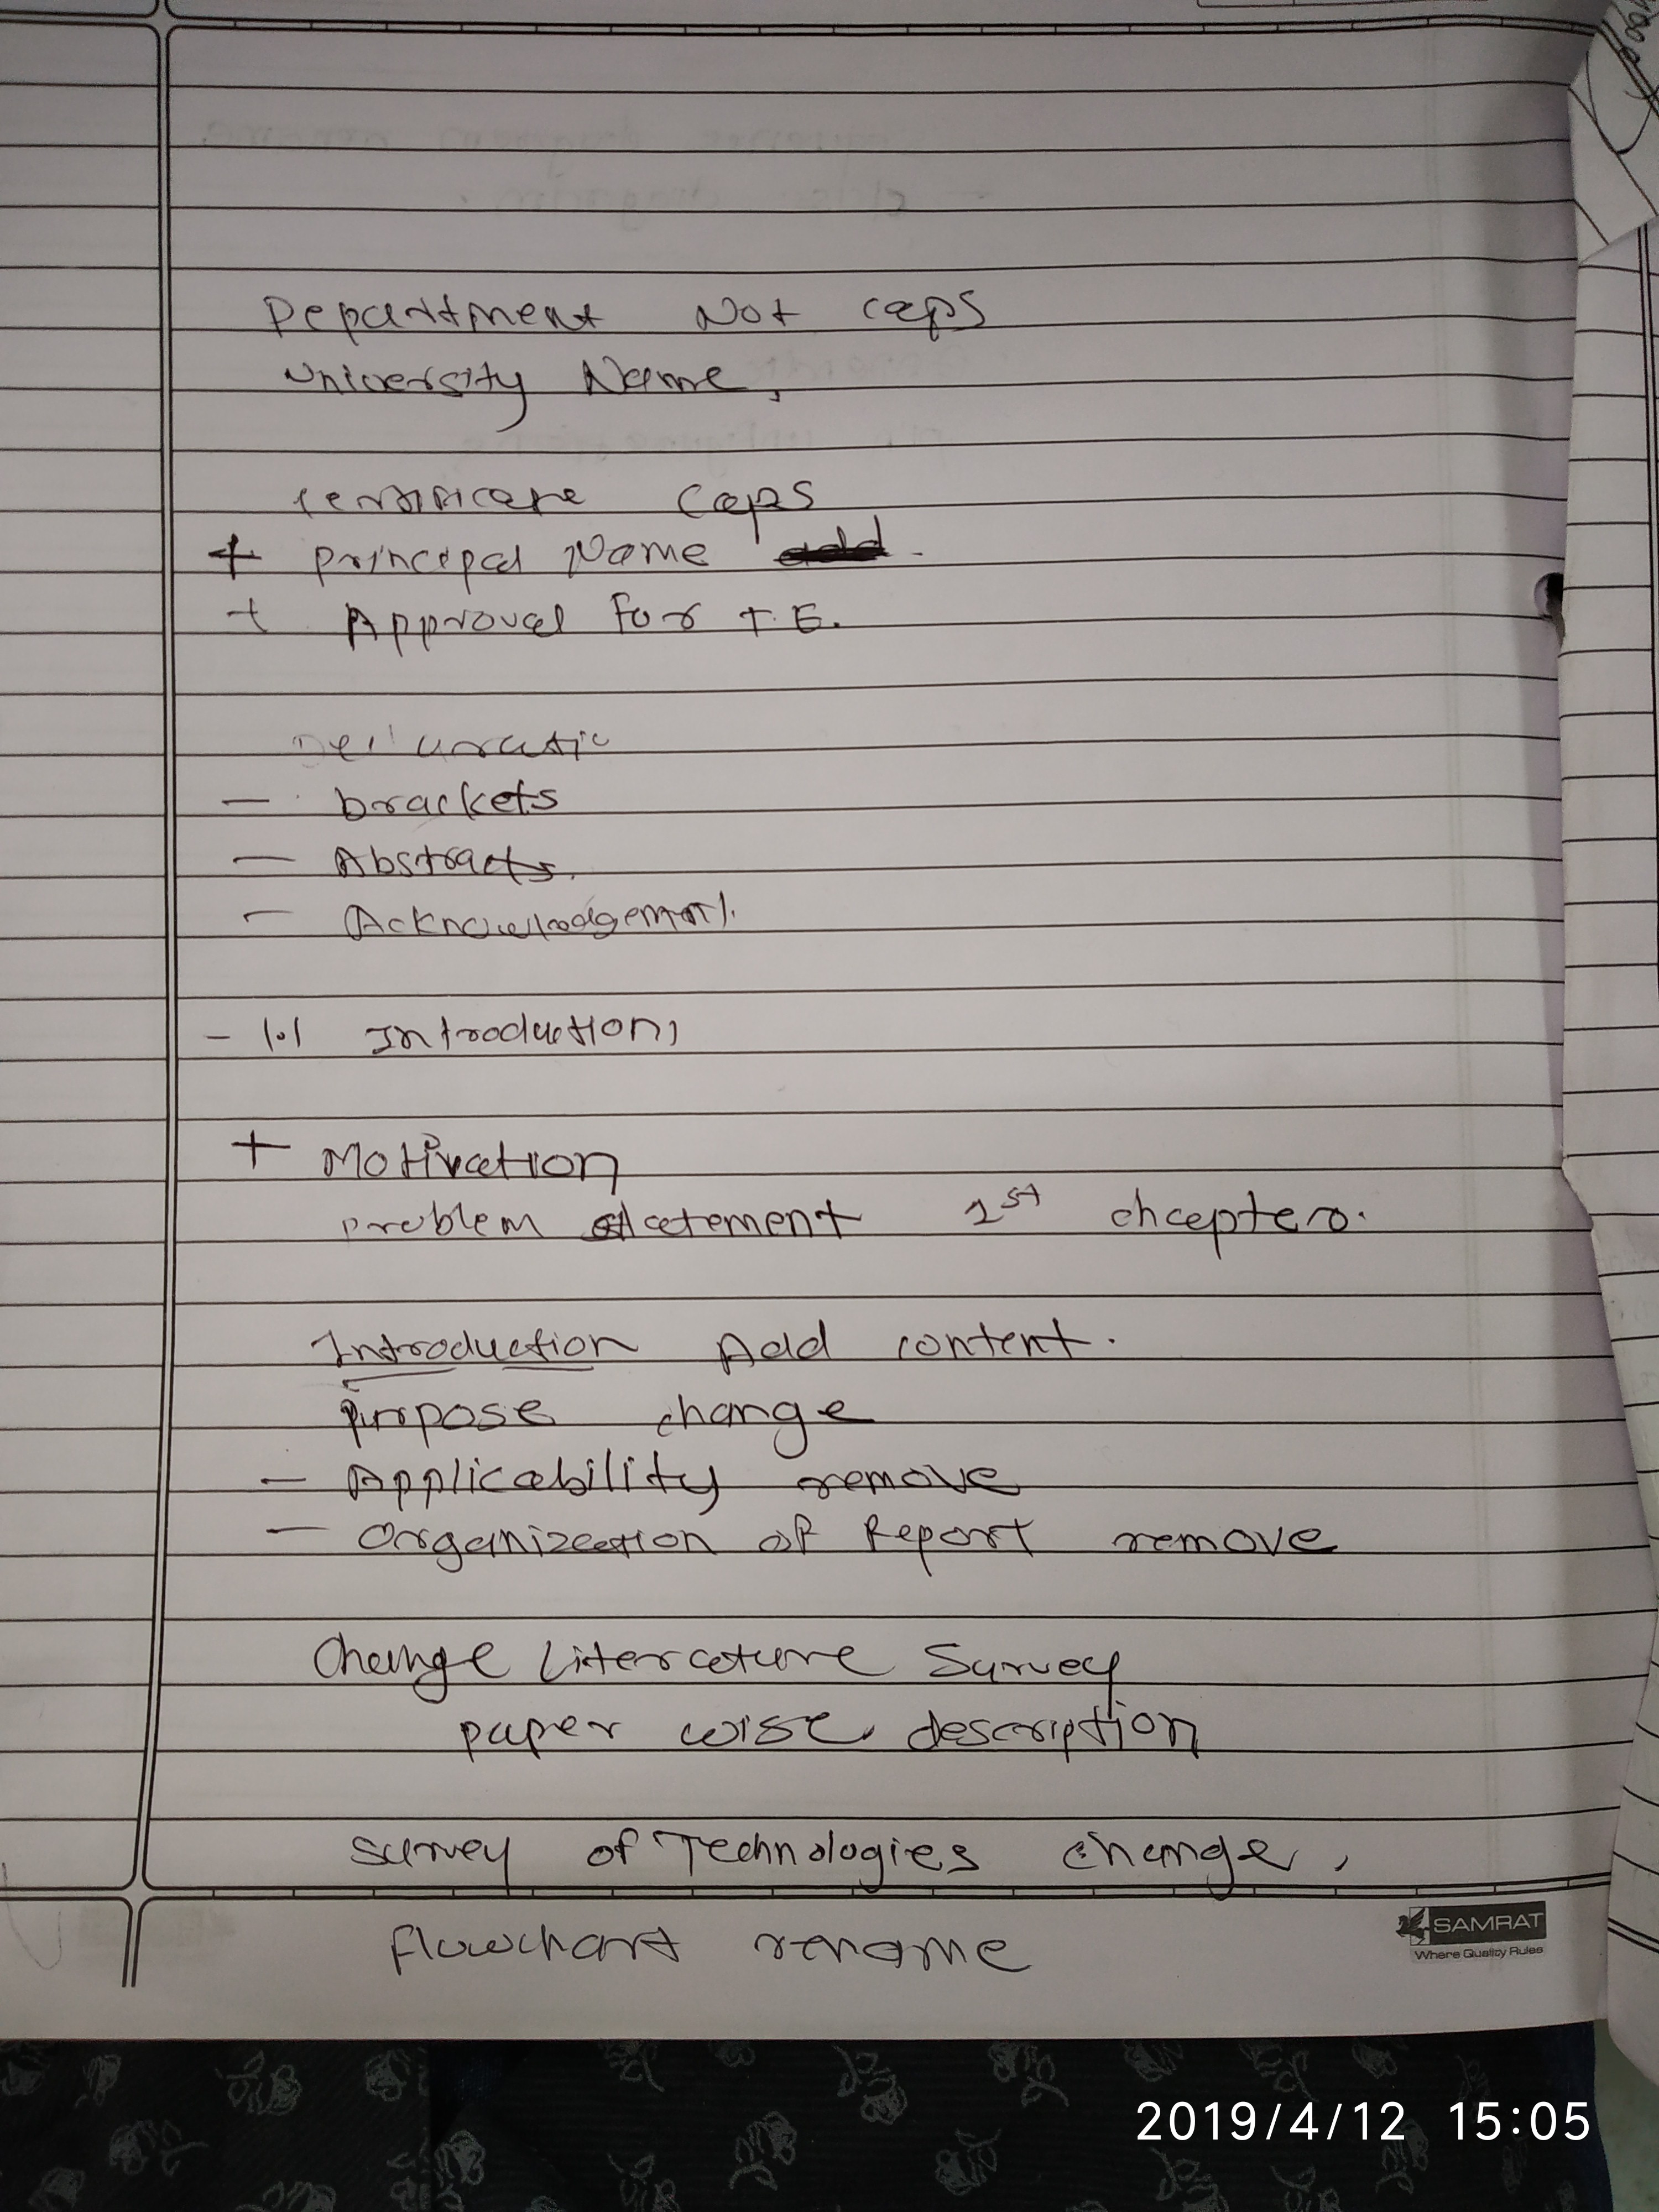 Department Not caps
University Name,
certificate caps
+ principal Name add.
+ Approval For T.E.
- brackets
- Abstracts.
- Acknowledgement.
- 1.1 Introduction,
+ Motivation
problem statement 1st chapter.
Introduction Add content.
purpose change
- Applicability remove
- Organization of Report remove
Change Literature Survey
paper wise description
survey of Technologies change,
flowchart rename
SAMRAT
Where Quality Rules
2019/4/12 15:05